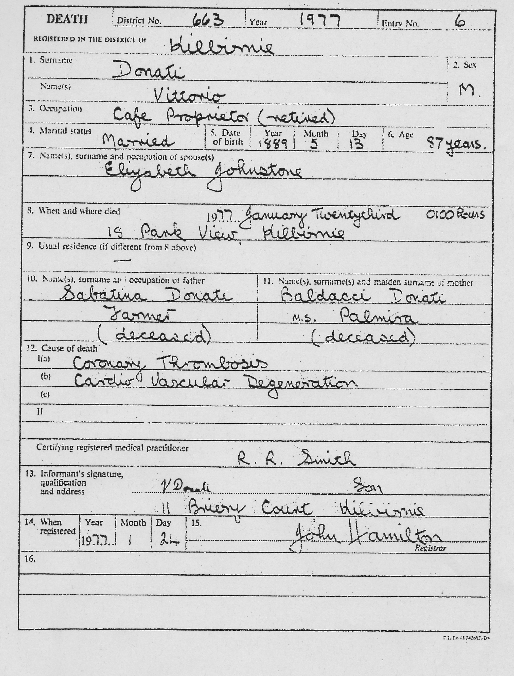 DEATH District No. 663 Year 1977 Entry No. 6
REGISTERED IN THE DISTRICT OF Kilbirnie
1. Surname Donati 2. Sex
Name(s) Vittorio M.
3. Occupation Cafe Proprietor (retired)
4. Marital status Married 5. Date of birth Year 1889 Month 5 Day 13 6. Age 87 years.
7. Name(s), surname and occupation of spouse(s)
Elizabeth Johnstone
8. When and where died 1977 January Twentythird 0100 Hours
18 Park View, Kilbirnie
9. Usual residence (if different from 8 above)
—
10. Name(s), surname and occupation of father 11. Name(s), surname(s) and maiden surname of mother
Sabatina Donati Baldacci Donati
Farmer m.s. Palmira
(deceased) (deceased)
12. Cause of death
I(a) Coronary Thrombosis
(b) Cardio Vascular Degeneration
(c)
II
Certifying registered medical practitioner
R. R. Smith
13. Informant's signature, qualification and address V Donati Son
11 Briery Court Kilbirnie
14. When registered Year 1977 Month 1 Day 24 15. John Hamilton
Registrar
16.